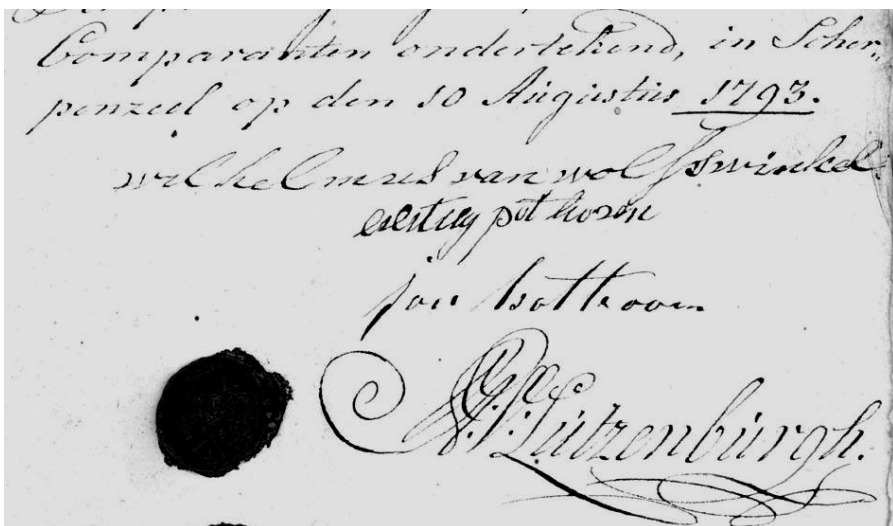 Comparanten ondertekend, in Scher„
penzeel op den 10 Augustus 1793.
wilhelmus van wolfswinkel
pothoven
jan
Lutzenburgh.